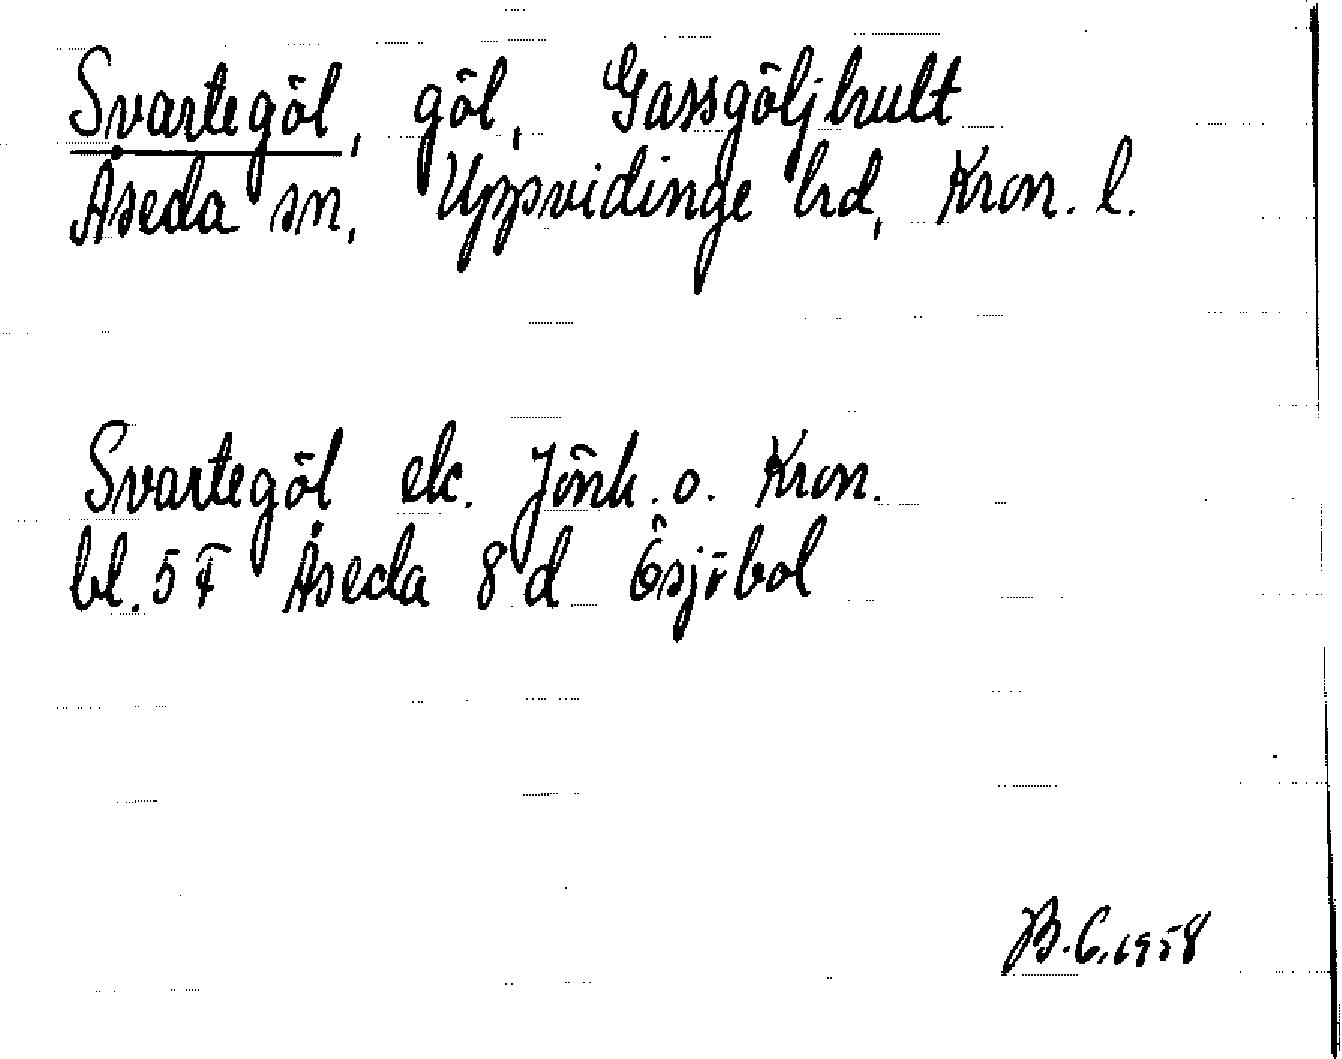 Svartegöl, göl, Gassgöljhult
Åseda sn, Uppvidinge hd, Kron. l.
Svartegöl ek. Jönk. o. Kron.
bl. 5 F Åseda 8 d Ösjöbol
B. C. 1958